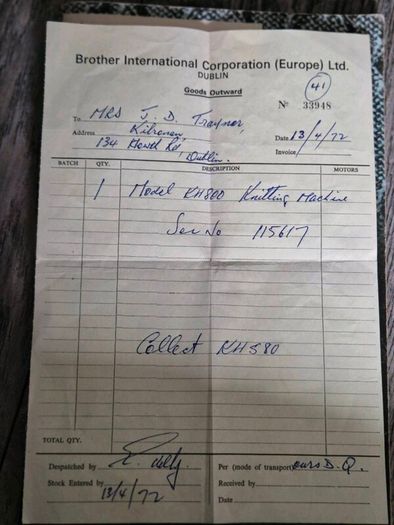 Brother International Corporation (Europe) Ltd.
DUBLIN
Goods Outward
41
Nº 33948
To MRS J. D. Traynor,
Address Kilronan,
134 Howth Rd, Dublin.
Date 13/4/72
Invoice
BATCH QTY. DESCRIPTION MOTORS
1 Model KH800 Knitting Machine
Ser No 115617
Collect KH580
TOTAL QTY.
Despatched by
Per (mode of transport) ours D.Q.
Stock Entered by 13/4/72
Received by
Date